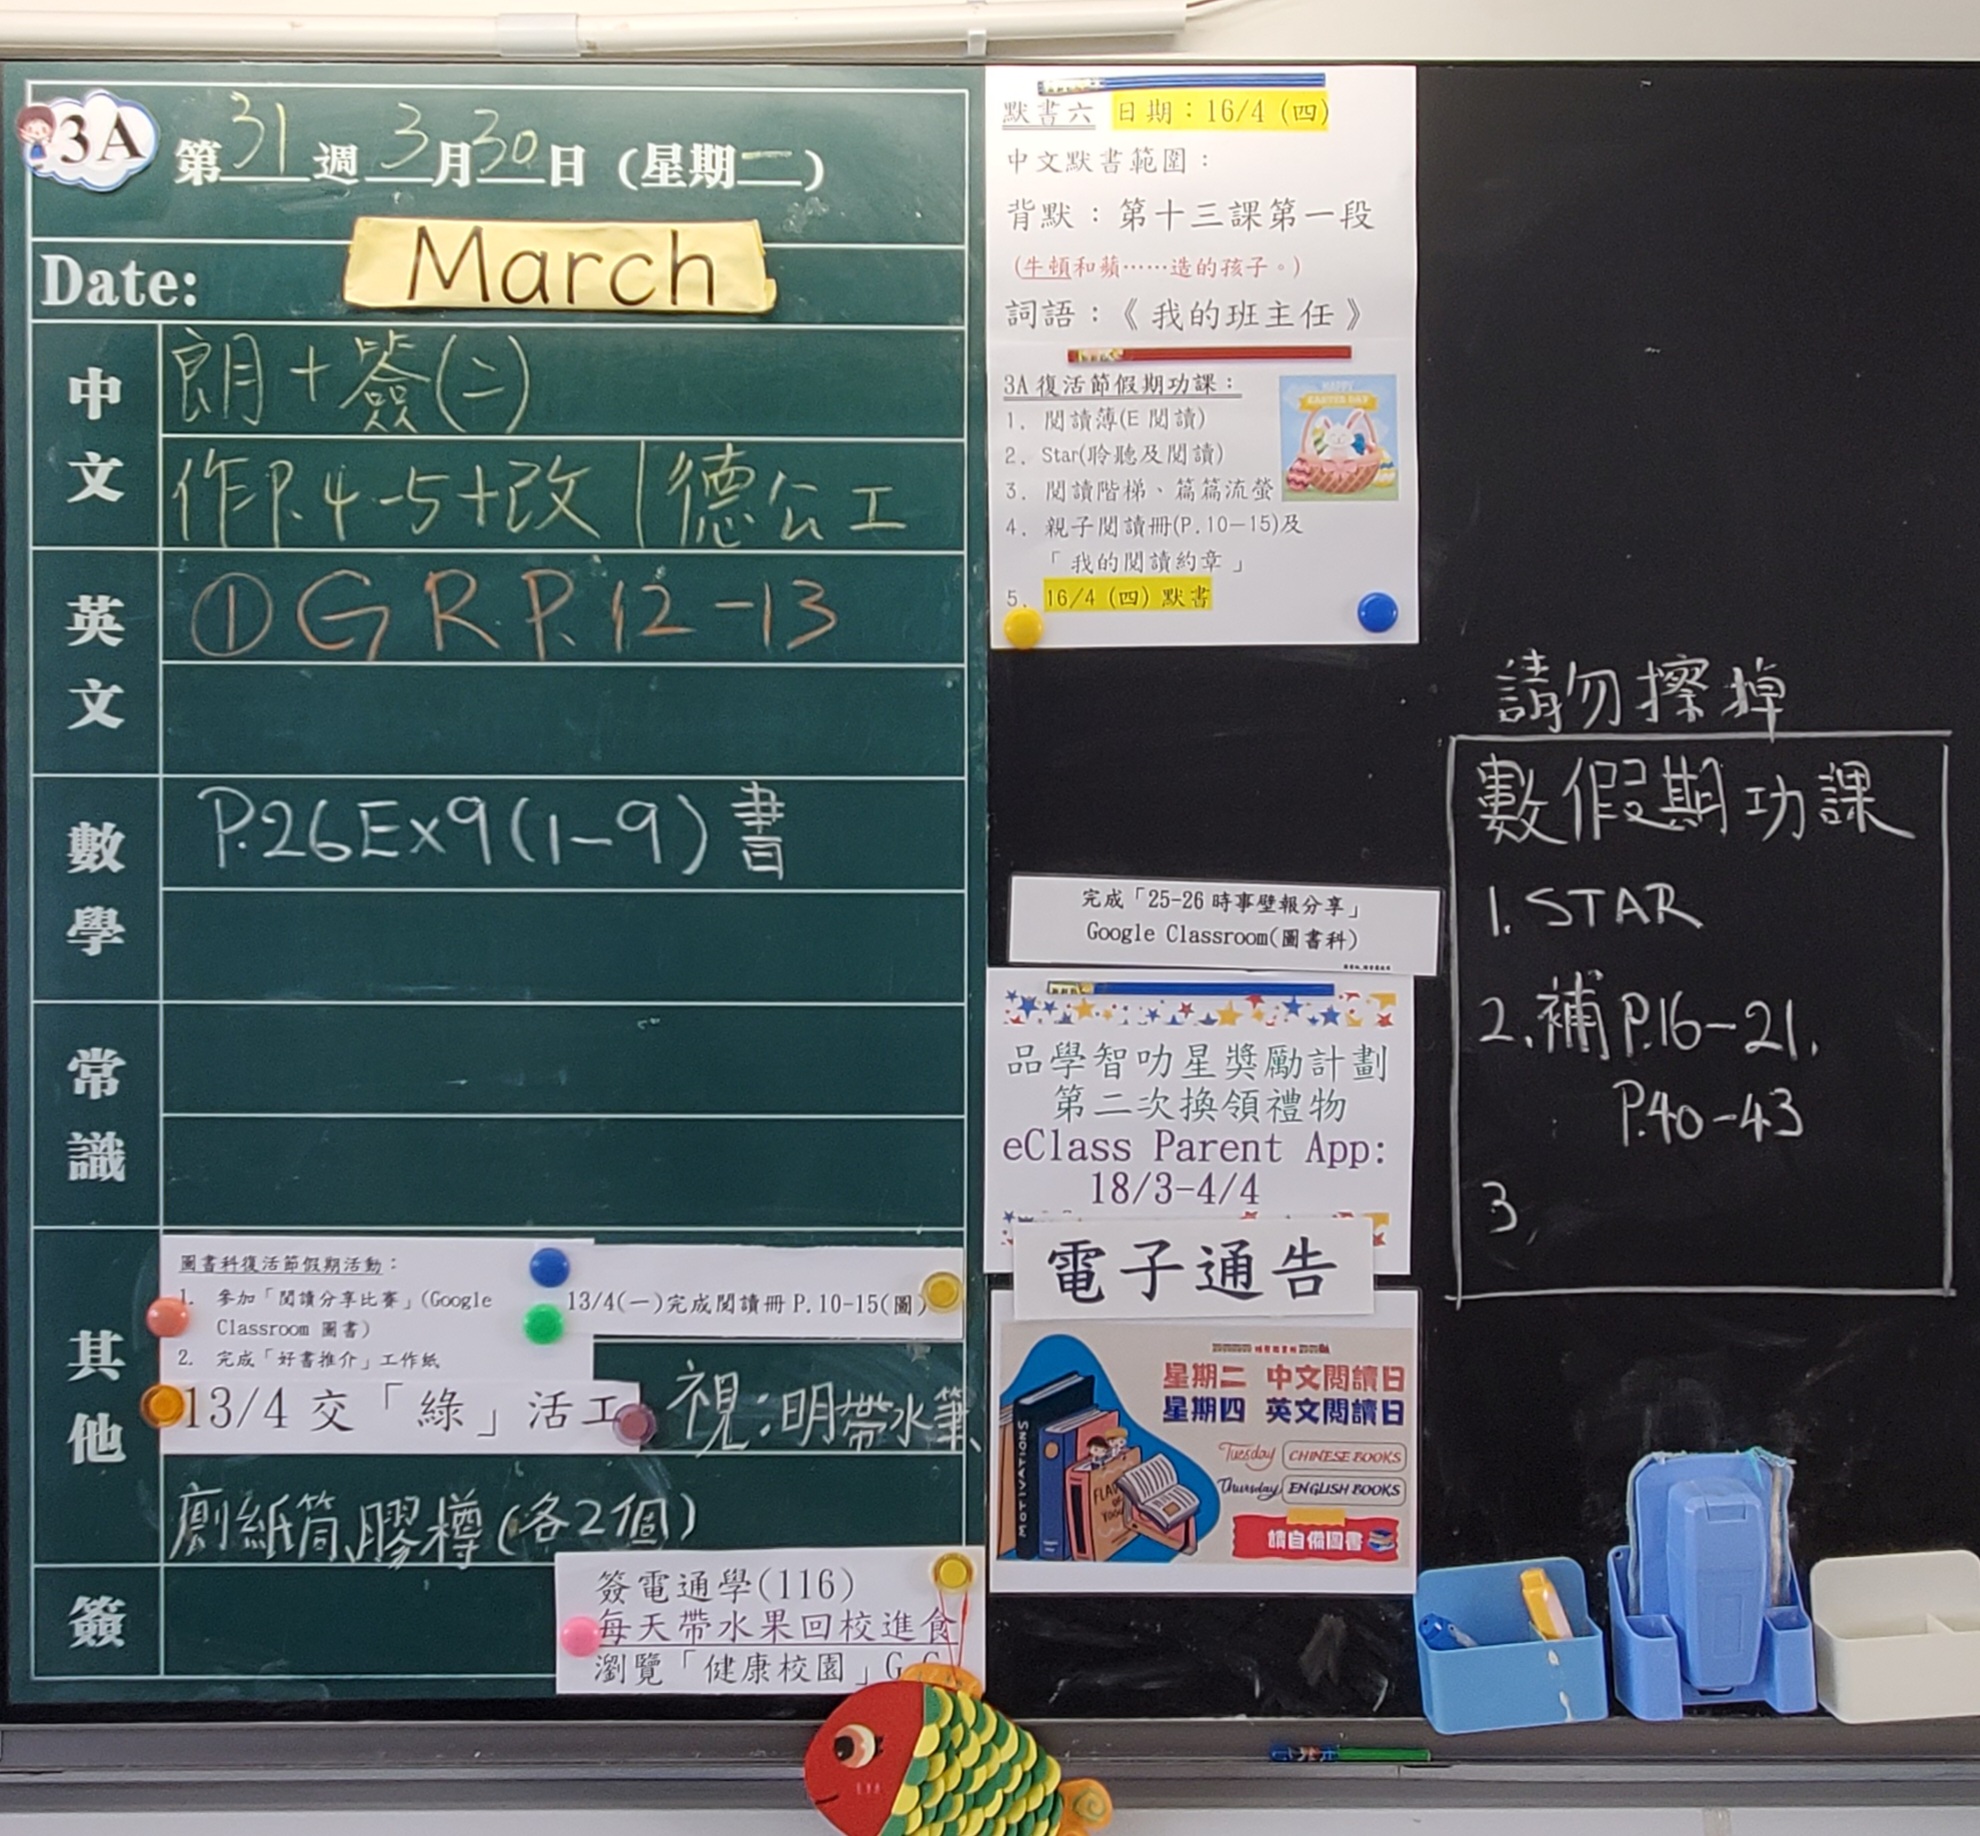 3A
第31週 3月30日(星期二)
Date: March
中文
朗+簽(二)
作P.4-5+改 | 德公工
英文
① G R P. 12-13
數學
P.26Ex9(1-9)書
常識
其他
圖書科復活節假期活動：
1. 參加「閱讀分享比賽」(Google
Classroom 圖書)
2. 完成「好書推介」工作紙
13/4(一)完成閱讀冊 P.10-15(圖)
13/4 交「綠」活工
視：明帶水筆、
廁紙筒、膠樽(各2個)
簽
簽電通學(116)
每天帶水果回校進食
瀏覽「健康校園」G.C
默書六 日期：16/4 (四)
中文默書範圍：
背默：第十三課第一段
(牛頓和蘋……造的孩子。)
詞語：《我的班主任》
3A 復活節假期功課：
HAPPY
EASTER DAY
1. 閱讀薄(E 閱讀)
2. Star(聆聽及閱讀)
3. 閱讀階梯、篇篇流螢
4. 親子閱讀冊(P.10-15)及
「我的閱讀約章」
5. 16/4 (四) 默書
完成「25-26 時事壁報分享」
Google Classroom(圖書科)
品學智叻星獎勵計劃
第二次換領禮物
eClass Parent App:
18/3-4/4
電子通告
星期二 中文閱讀日
星期四 英文閱讀日
Tuesday CHINESE BOOKS
Thursday ENGLISH BOOKS
讀自備圖書
MOTIVATIONS
請勿擦掉
數假期功課
1. STAR
2. 補 P.16-21,
P.40-43
3.